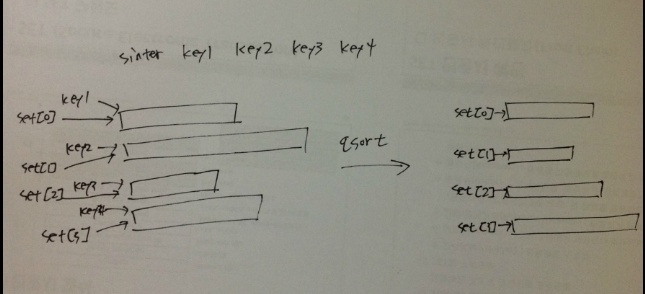 sinter key1 key2 key3 key4
key1
set[0]
key2
set[1]
key3
set[2]
key4
set[3]
qsort
set[0]
set[1]
set[2]
set[3]